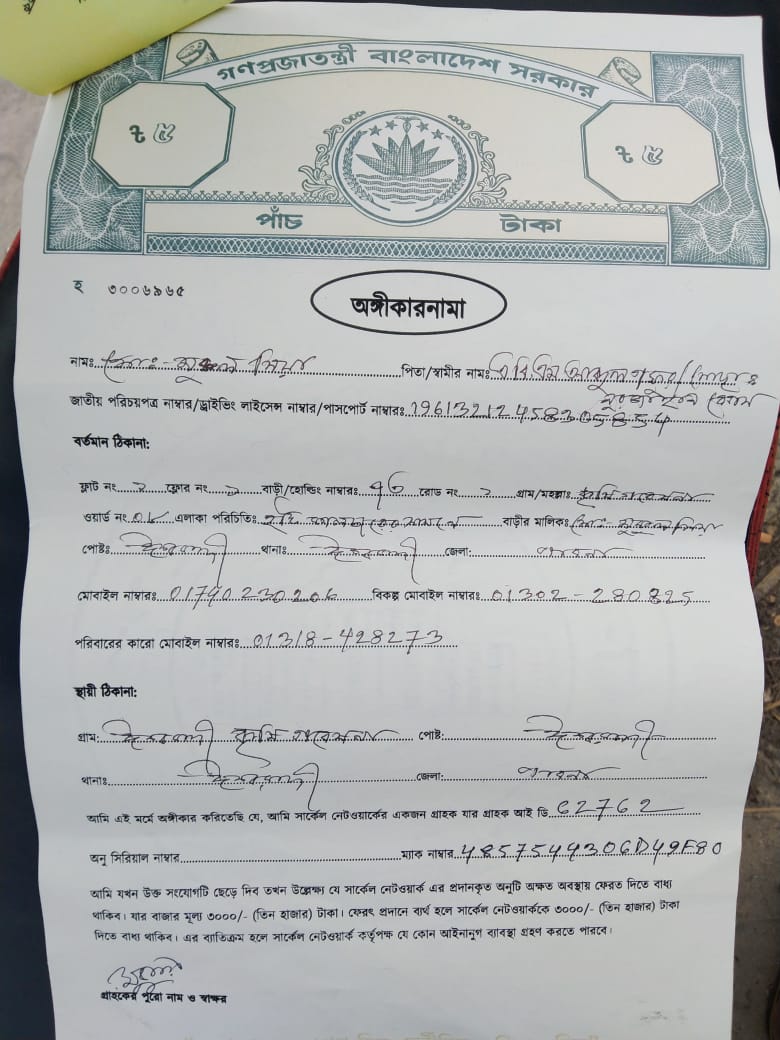 গণপ্রজাতন্ত্রী বাংলাদেশ সরকার
৳ ৫ ৳ ৫
পাঁচ টাকা
হ ৩০০৬৯৬৫
অঙ্গীকারনামা
নামঃ মোঃ - মিয়া পিতা/স্বামীর নামঃ এ বি এম
জাতীয় পরিচয়পত্র নাম্বার/ড্রাইভিং লাইসেন্স নাম্বার/পাসপোর্ট নাম্বারঃ
বর্তমান ঠিকানা:
ফ্লাট নং ফ্লোর নং বাড়ী/হোল্ডিং নাম্বারঃ রোড নং গ্রাম/মহল্লাঃ কৃষি গবেষনা
ওয়ার্ড নং এলাকা পরিচিতিঃ বাড়ীর মালিকঃ মোঃ মিয়া
পোষ্টঃ ঈশ্বরদী থানাঃ ঈশ্বরদী জেলা: পাবনা
মোবাইল নাম্বারঃ 01790230206 বিকল্প মোবাইল নাম্বারঃ 01302-280825
পরিবারের কারো মোবাইল নাম্বারঃ 01318-428273
স্থায়ী ঠিকানা:
গ্রাম: ঈশ্বরদী কৃষি গবেষনা পোষ্ট: ঈশ্বরদী
থানাঃ ঈশ্বরদী জেলা: পাবনা
আমি এই মর্মে অঙ্গীকার করিতেছি যে, আমি সার্কেল নেটওয়ার্কের একজন গ্রাহক যার গ্রাহক আই ডি C2762
অনু সিরিয়াল নাম্বার ম্যাক নাম্বার 4857544306D49F80
আমি যখন উক্ত সংযোগটি ছেড়ে দিব তখন উল্লেক্ষ্য যে সার্কেল নেটওয়ার্ক এর প্রদানকৃত অনুটি অক্ষত অবস্থায় ফেরত দিতে বাধ্য
থাকিব। যার বাজার মূল্য ৩০০০/- (তিন হাজার) টাকা। ফেরৎ প্রদানে ব্যর্থ হলে সার্কেল নেটওয়ার্ককে ৩০০০/- (তিন হাজার) টাকা
দিতে বাধ্য থাকিব। এর ব্যাতিক্রম হলে সার্কেল নেটওয়ার্ক কর্তৃপক্ষ যে কোন আইনানুগ ব্যাবস্থা গ্রহণ করতে পারবে।
গ্রাহকের পুরো নাম ও স্বাক্ষর